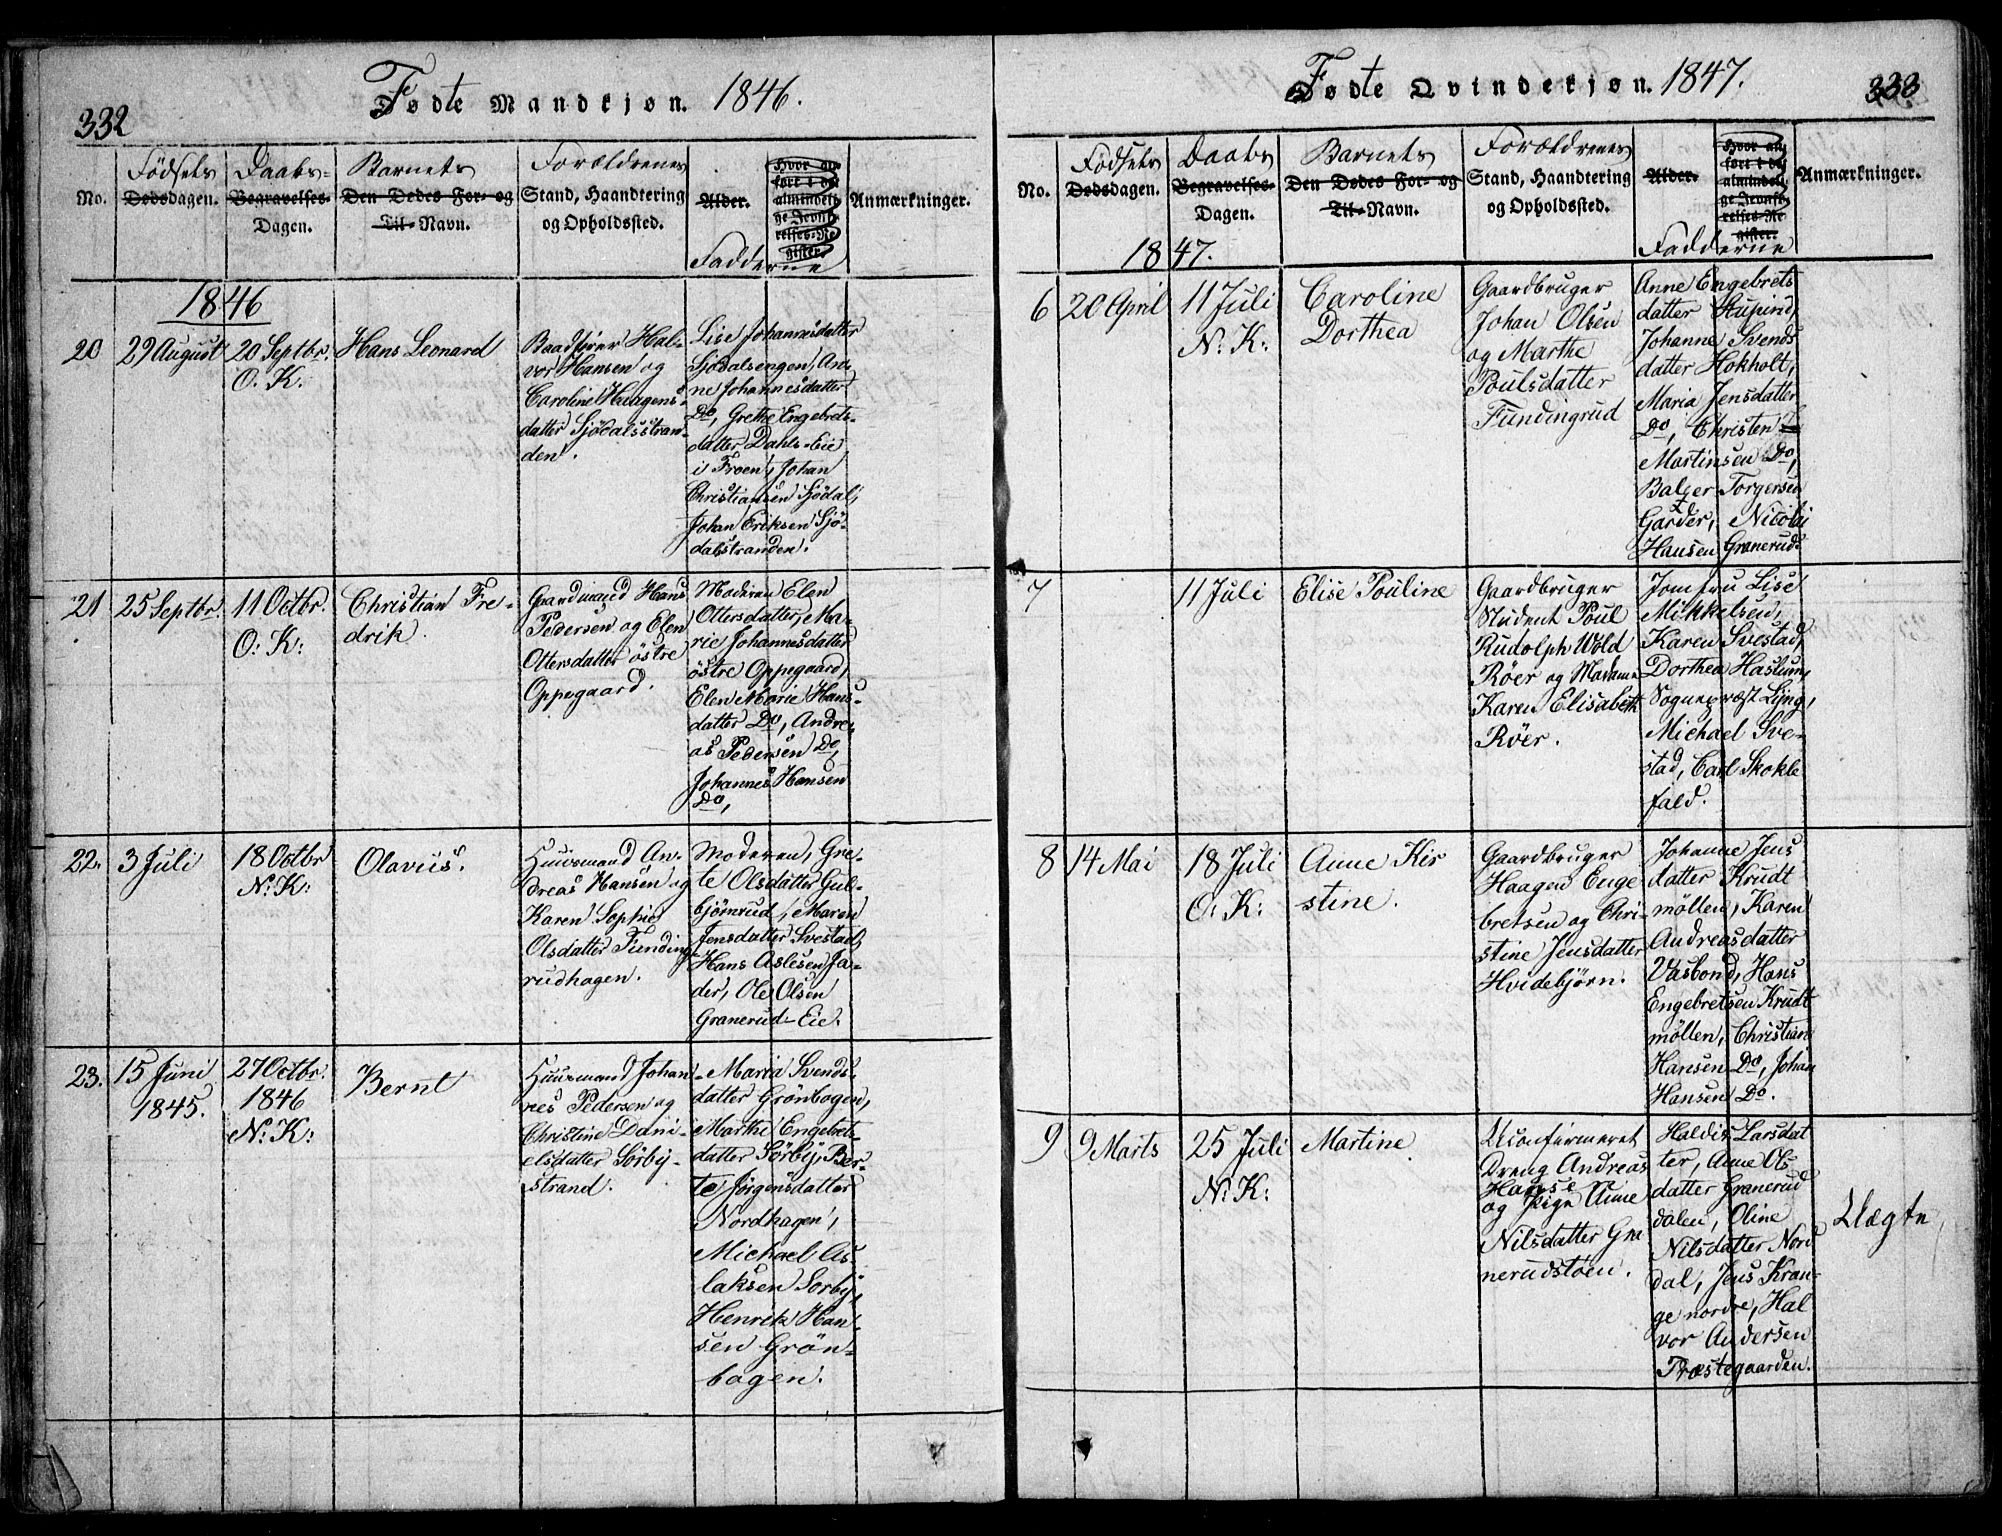 332
Fødte Mandkjøn. 1846.
No.
Fødsels
Dødsdagen.
Daabs-
Begravelses-
Dagen.
Barnets
Den Dødes For- og
Til-Navn.
Forældrenes
Stand, Haandtering
og Opholdssted.
Alder.
Hvor an-
ført i det
almindeli-
ge Jevnfø-
relses-Re-
gister.
Fadderne
Anmærkninger.
1846
20
29 August
20 Septbr.
O. K.
Hans Leonard
Baadfører Hal-
vor Hansen og
Caroline Haagens-
datter Sjödalsstran-
den.
Lise Johannesdatter
Sjödalsengen, An-
ne Johannesdatter
Do, Grethe Engebrets-
datter Dahls-Eie
i Froen, Johan
Christiansen Sjödal,
Johan Eriksen Sjö-
dalsstranden.
21
25 Septbr.
11 Octbr.
O: K:
Christian Fre-
drik.
Gaardmand Hans
Pedersen og Elen
Ottersdatter östre
Oppegaard.
Moderen Elen
Ottersdatter, Ma-
rie Johannesdatter
östre Oppegaard,
Elen Marie Hans-
datter Do, Andre-
as Pedersen Do,
Johannes Hansen
Do,
22.
3 Juli
18 Octbr
N: K:
Olaviis.
Huusmand An-
dreas Hansen og
Karen Sophie
Olsdatter Funding-
rudhagen.
Moderen, Gre-
te Olsdatter Gul-
bjørnrud, Maren
Jensdatter Svestad,
Hans Aslesen Ja-
der, Ole Olsen
Granerud-Eie.
23.
15 Juni
1845.
27 Octbr.
1846
N: K:
Bernt
Huusmand Johan-
nes Pedersen og
Christine Dani-
elsdatter Sørby-
strand.
Maria Svends-
datter Grönbogen,
Marthe Engebrets-
datter Sörby, Ber-
te Jørgensdatter
Nordhagen,
Michael As-
laksen Sørby,
Henrik Han-
sen Grön-
bogen.
333
Fødte Qvindekjøn. 1847.
No.
Fødsels
Dødsdagen.
Daabs
Begravelses-
Dagen.
Barnets
Den Dødes For- og
Til-Navn.
Forældrenes
Stand, Haandtering
og Opholdssted.
Alder.
Hvor an-
ført i det
almindeli-
ge Jevnfø-
relses-Re-
gister.
Fadderne
Anmærkninger.
1847.
6
20 April
11 Juli
N: K:
Caroline
Dorthea
Gaardbruger
Johan Olsen
og Marthe
Poulsdatter
Fundingrud
Anne Engebrets
datter Stupind,
Johanne Svends
datter Hokholt,
Maria Jensdatter
Do, Christen
Martinsen Do,
Balzer Torgersen
Garder, Nicolai
Hansen Granerud.
7
11 Juli
Elise Pouline
Gaardbruger
Student Poul
Rudolph Wold
Røer og Madame
Karen Elisabeth
Røer.
Jomfru Lise
Mikkelsen,
Karen Svestad,
Dorthea Haslum,
Sognepræst Lyng,
Michael Sve-
stad, Carl Skokle
fald.
8
14 Mai
18 Juli
O: K:
Anne Kir
stine.
Gaardbruger
Haagen Enge
bretsen og Chri-
stine Jensdatter
Hvidebjørn.
Johanne Jens
datter Krudt
möllen, Karen
Andreasdatter
Vasbond, Hans
Engebretsen Krudt
möllen, Christian
Hansen Do, Johan
Hansen Do.
9
9 Marts
25 Juli
N: K:
Martine
Uconfirmeret
Dreng Andreas
Hanse
og Pige Anne
Nilsdatter Gra
nerudstøen.
Haldis Larsdat
ter, Anne Ols
datter Granerud
dalen, Oline
Nilsdatter Nord
dal, Jens Kran-
ge nordre, Hal
vor Andersen
Præstegaarden.
Uægte